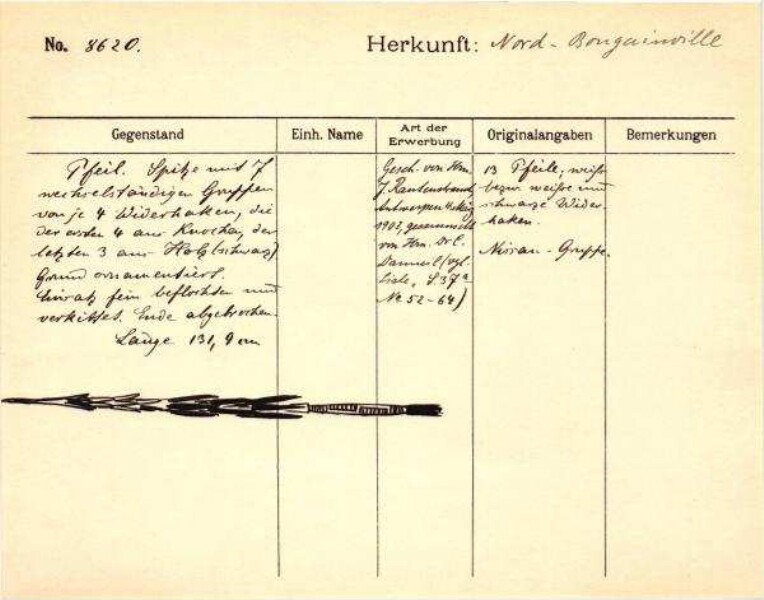 No. 8620.
Herkunft: Nord-Bougainville
Gegenstand
Einh. Name
Art der
Erwerbung
Originalangaben
Bemerkungen
Pfeil. Spitze mit 7
wechselständigen Gruppen
von je 4 Widerhaken, die
der ersten 4 aus Knochen, der
letzten 3 aus Holz (schwarz)
Grund ornamentiert.
Einsatz fein beflochten und
verkittet. Ende abgebrochen.
Länge 131,9 cm
Gesch. von Hrn.
J. Rautenstrauch,
Antwerpen
1903, gesammelt
von Hrn. Dr. E.
Danneil (vgl.
Liste, S. 37a
No 52-64)
13 Pfeile, weiße
bezw. weiße und
schwarze Wider-
haken.
Nissan-Gruppe.